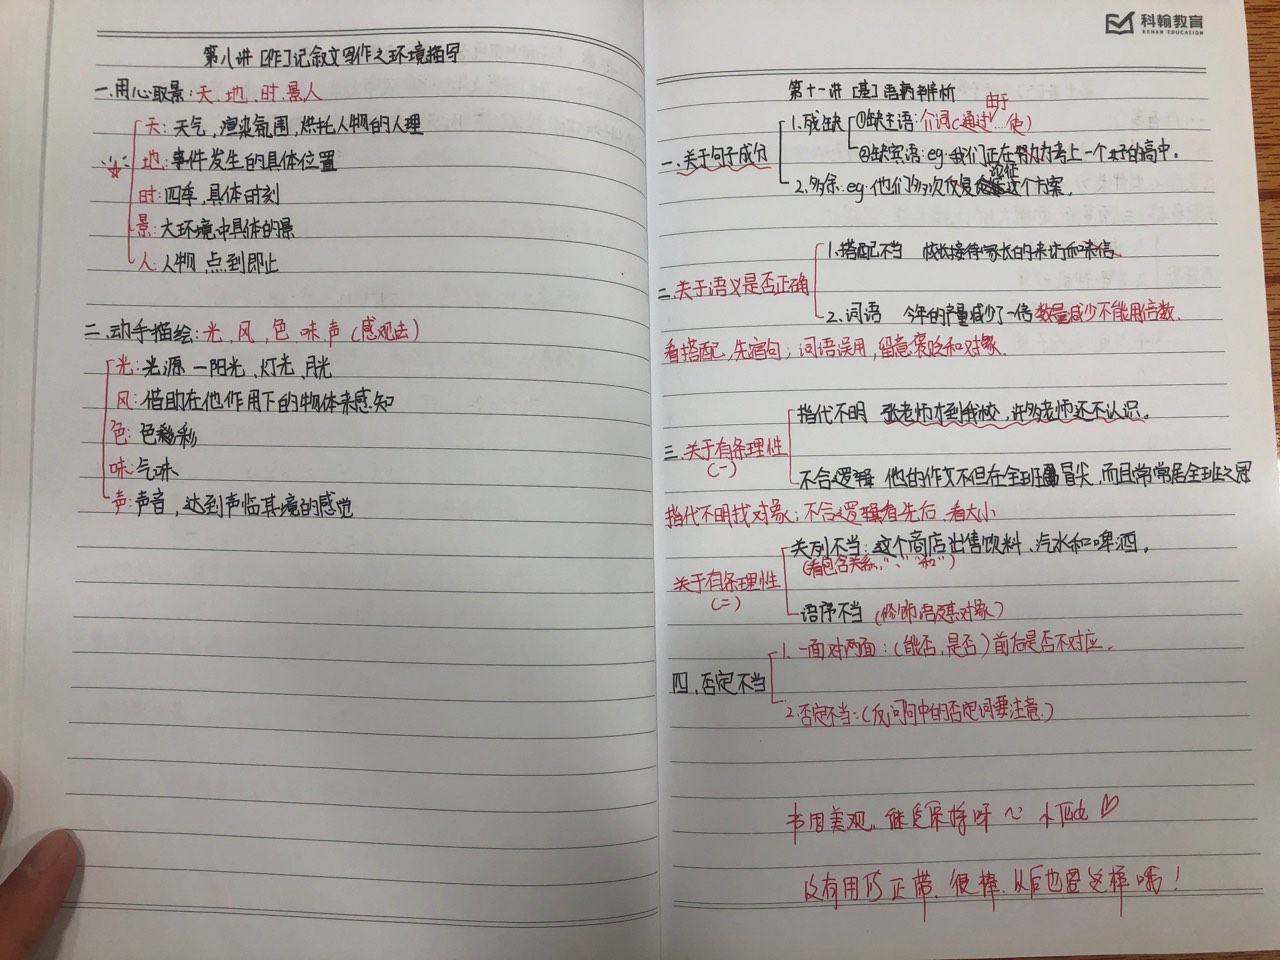 第八讲 [作]记叙文写作之环境描写
一.用心取景:天、地、时、景人
天:天气,渲染氛围,烘托人物的人理
地:事件发生的具体位置
时:四季,具体时刻
景:大环境中具体的景
人:人物 点到即止
二.动手描绘:光、风、色、味、声(感观法)
光:光源—阳光、灯光、月光
风:借助在他作用下的物体来感知
色:色彩
味:气味
声:声音,达到声临其境的感觉
科翰教育
KEHAN EDUCATION
第十一讲 [基]语病辨析
一.关于句子成分
1.残缺
①缺主语:介词(通过……使)
由于
②缺宾语:eg.我们正在努力考上一个好的高中。
2.多余:eg.他们多次反复论证这个方案。
二.关于语义是否正确
1.搭配不当 校长接待家长的来访和来信
2.词语 今年的产量减少了一倍 数量减少不能用倍数.
看搭配,先缩句;词语误用,留意褒贬和对象.
三.关于有条理性
(一)
指代不明 张老师才到我校,许多老师还不认识。
不合逻辑 他的作文不但在全班冒尖,而且常常居全班之冠
指代不明找对象;不合逻辑看先后、看大小
关于有条理性
(二)
关列不当:这个商店出售饮料、汽水和啤酒。
(看包含关系,"、""和")
语序不当(修饰语及其对象)
四.否定不当
1.一面对两面:(能否,是否)前后是否不对应.
2.否定不当:(反问句中的否定词要注意.)
书写美观,继续保持呀~
没有用修正带,很棒,以后也要这样哦!